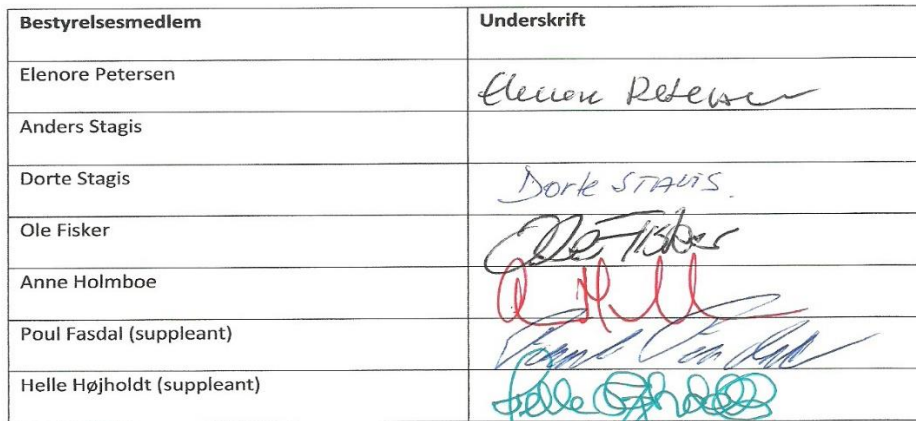 Bestyrelsesmedlem Underskrift
Elenore Petersen Elenore Petersen
Anders Stagis
Dorte Stagis Dorte STAGIS.
Ole Fisker Ole Fisker
Anne Holmboe
Poul Fasdal (suppleant) Poul Fasdal
Helle Højholdt (suppleant) Helle Højholdt